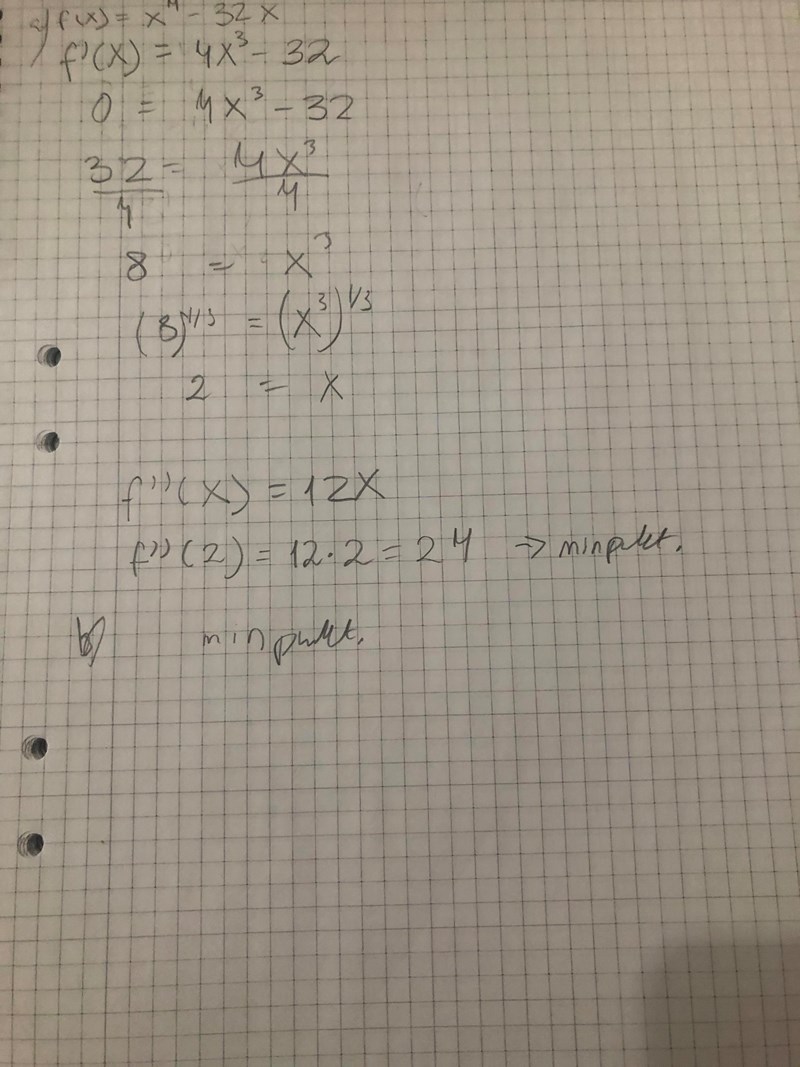 a) f(x) = x⁴ - 32x
f'(x) = 4x³ - 32
0 = 4x³ - 32
32/4 = 4x³/4
8 = x³
(8)^1/3 = (x³)^1/3
2 = x
f''(x) = 12x
f''(2) = 12·2 = 24 → minpukt.
b) minpukt.